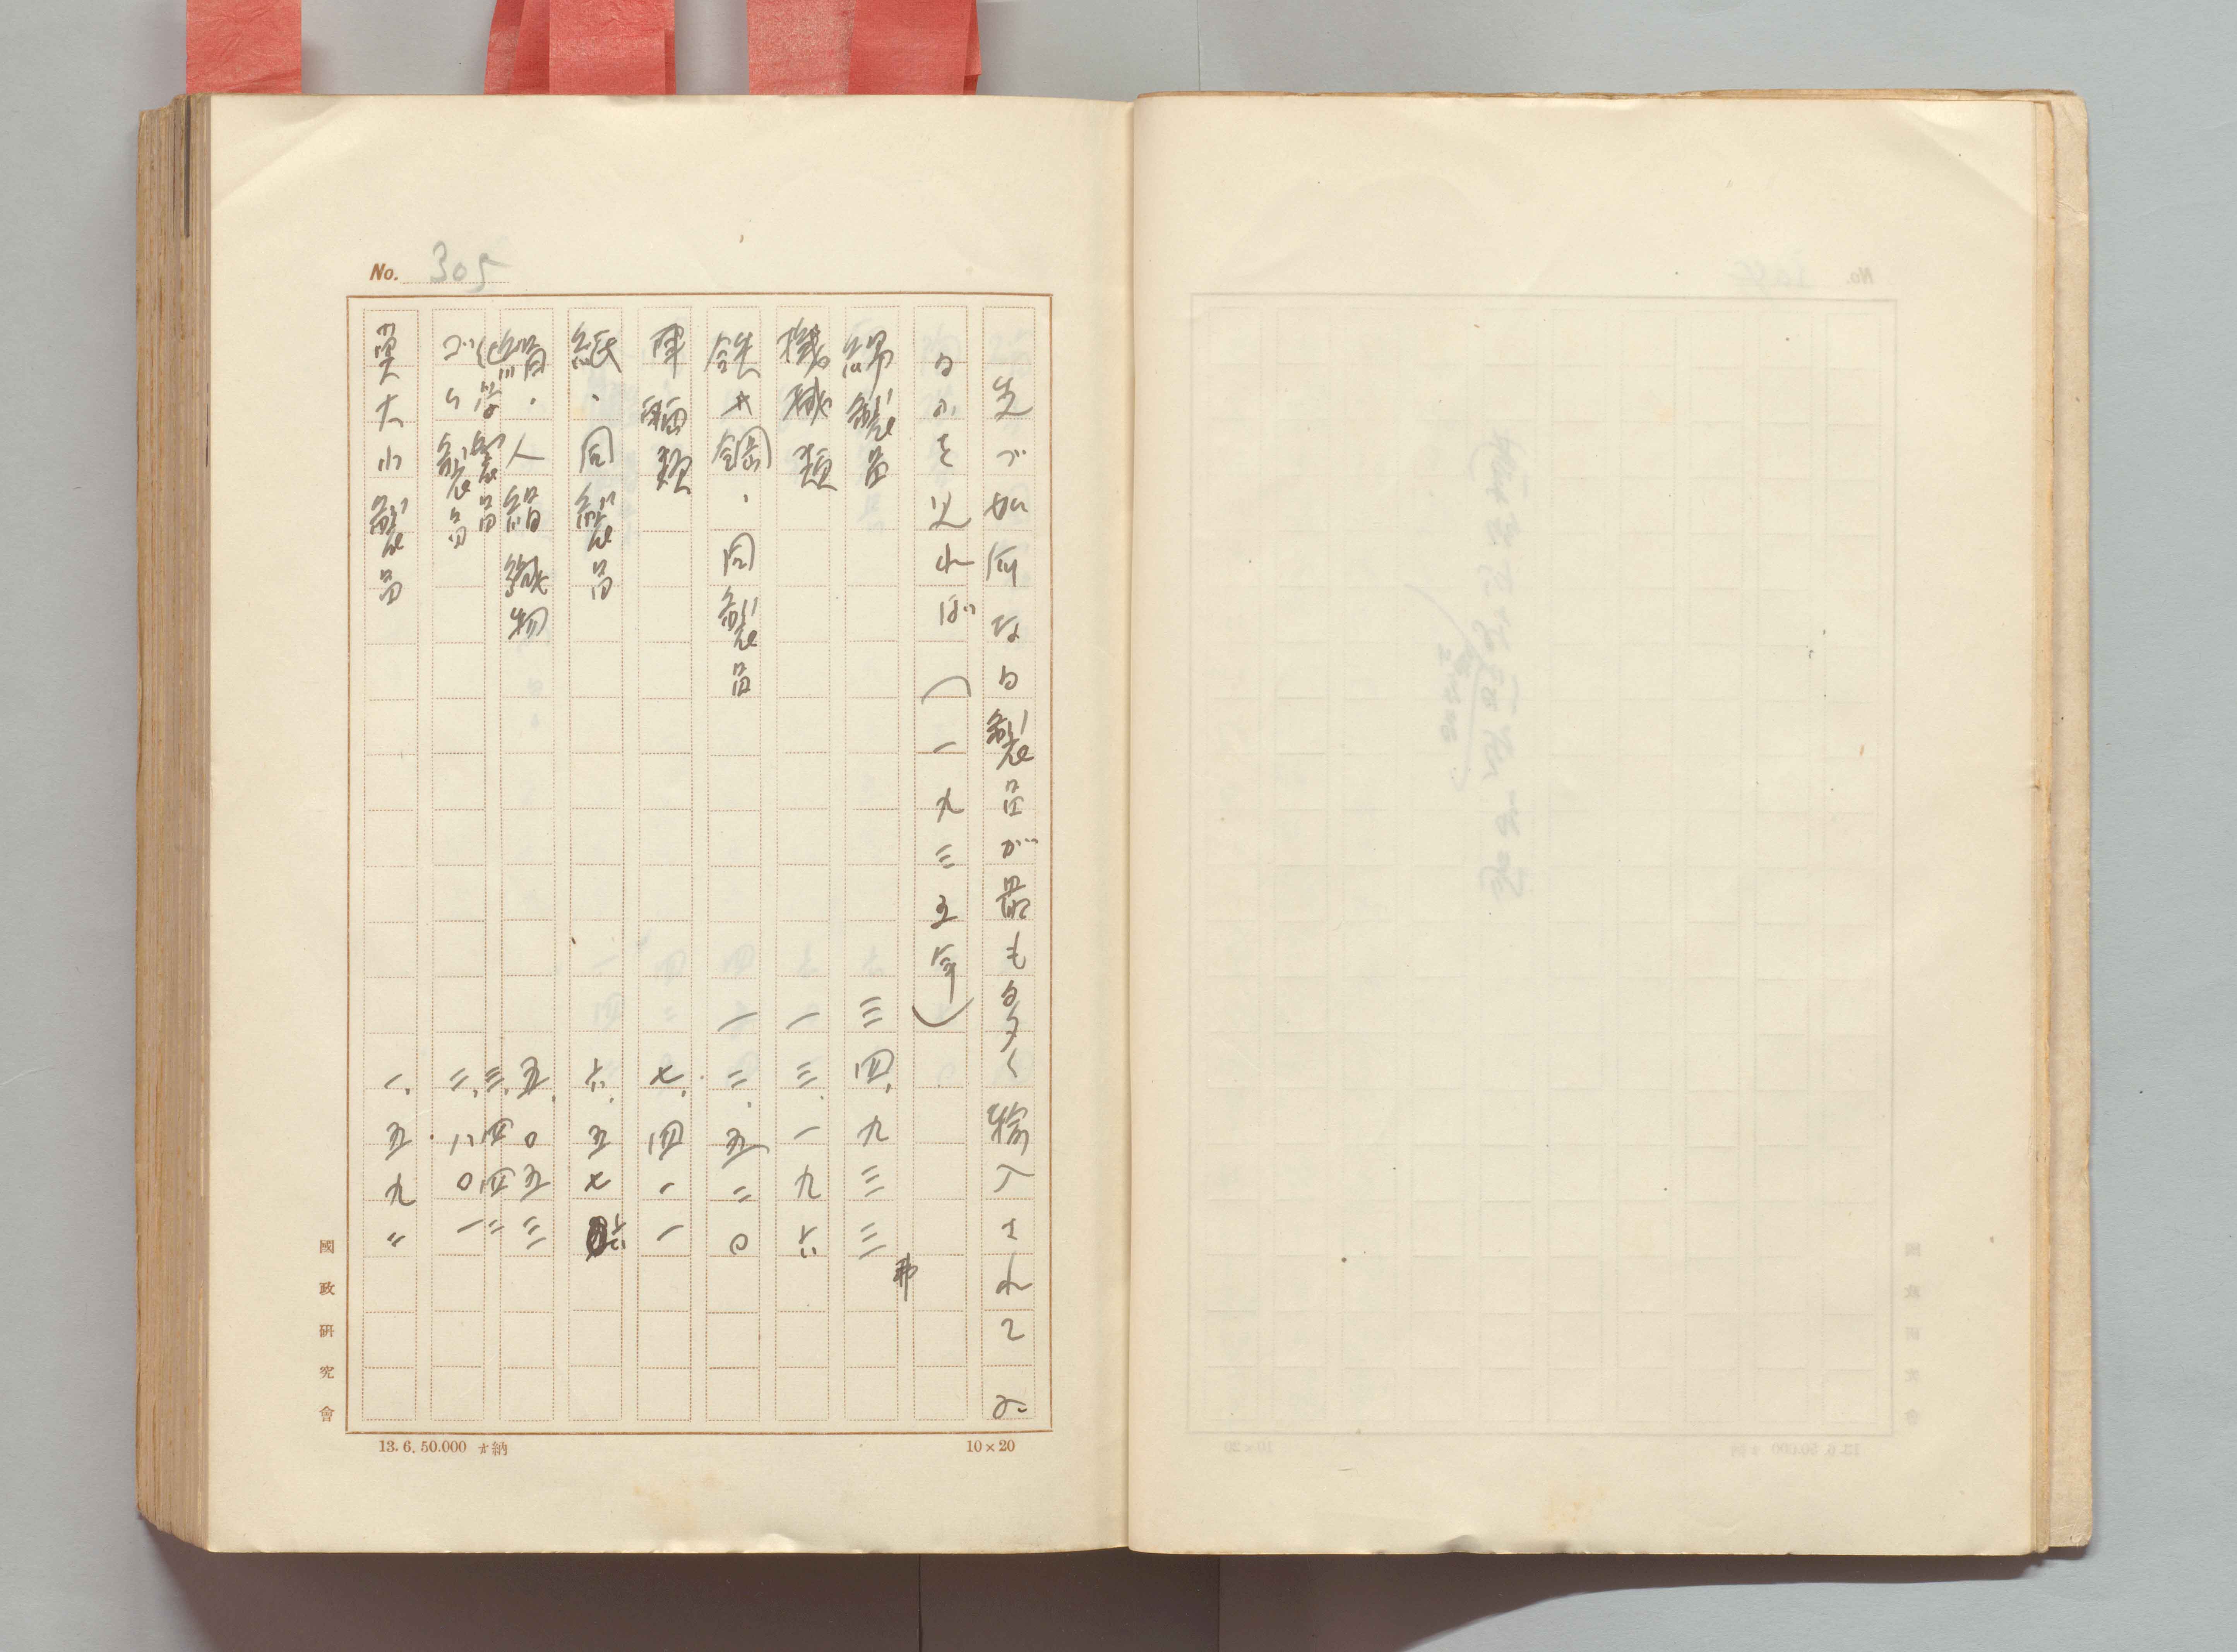 No. 305
先づ如何なる製品が最も多く輸入されてゐ
るかを見れば(一九三五年)
弗
綿製品 三四、九三三
機械類 一三、一九六
鉄又鋼・同製品 一二、五二〇
車輌類 七、四一一
紙・同製品 六、五七六
絹・人絹織物 五、〇五三
化学製品 三、四四二
ゴム製品 二、八〇一
製品 一、五九二
國政研究會
13. 6. 50.000 納
10×20